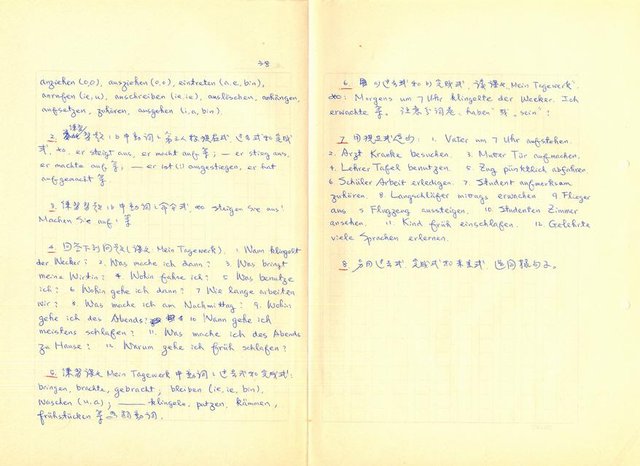 38
anziehen (o,o), ausziehen (o,o), eintreten (a,e,bin),
anrufen (ie,u), anschreiben (ie,ie), auslöschen, anhängen,
aufsetzen, zuhören, ausgehen (i,a,bin)
2. 练习 1 中动词: 第三人称现在式 过去式和完成
式. 如. er steigt aus, er macht auf 等; — er stieg aus.
er machte auf 等; — er ist ausgestiegen, er hat
aufgemacht 等
3. 练习 1 中动词: 命令式. 如 steigen Sie aus!
Machen Sie auf! 等
4. 回答下列问题 (课文 Mein Tagewerk). 1. Wann klingelt
der Wecker? 2. Was mache ich dann? 3. Was bringt
meine Wirtin? 4. Wohin fahre ich? 5. Was benutze
ich? 6. Wohin gehe ich dann? 7. Wie lange arbeiten
wir? 8. Was mache ich am Nachmittag? 9. Wohin
gehe ich des Abends? 10. Wann gehe ich
meistens schlafen? 11. Was mache ich des Abends
zu Hause? 12. Warum gehe ich früh schlafen?
5. 课文 Mein Tagewerk 中动词: 过去式和完成式:
bringen, brachte, gebracht; bleiben (ie, ie, bin),
waschen (u, a); — klingeln, putzen, kämmen,
frühstücken 等 弱动词.
6. 用过去式和完成式 读课文 "Mein Tagewerk"
如: Morgens um 7 Uhr klingelte der Wecker. Ich
erwachte 等. 注意 haben 或 "sein"!
7. 用现在式造句: 1. Vater um 7 Uhr aufstehen.
2. Arzt Kranke besuchen. 3. Mutter Tür aufmachen.
4. Lehrer Tafel benutzen. 5. Zug pünktlich abfahren.
6. Schüler Arbeit erledigen. 7. Student aufmerksam
zuhören. 8. Langschläfer mittags erwachen 9. Flieger
aus Flugzeug aussteigen. 10. Studenten Zimmer
ansehen. 11. Kind früh einschlafen. 12. Gelehrte
viele Sprachen erlernen.
8. 用过去式 完成式和未来式 造同样句子.